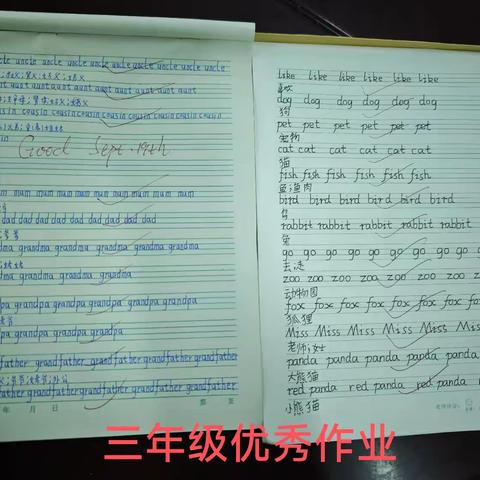 uncle uncle uncle uncle uncle uncle
aunt aunt aunt aunt aunt aunt
cousin cousin cousin cousin cousin cousin
Good Sept. 19th
mum mum mum mum mum mum mum
dad dad dad dad dad dad dad
grandma grandma grandma grandma
grandma grandma grandma
grandpa grandpa grandpa grandpa
grandpa grandpa
grandfather grandfather grandfather
grandfather grandfather grandfather
年 月 日
第 页
like like like like like like
喜欢
dog dog dog dog dog dog
狗
pet pet pet pet pet pet
宠物
cat cat cat cat cat cat
猫
fish fish fish fish fish fish
鱼;鱼肉
bird bird bird bird bird bird
鸟
rabbit rabbit rabbit rabbit rabbit
兔
go go go go go go go go
去;走
zoo zoo zoo zoo zoo zoo zoo
动物园
fox fox fox fox fox fox fox
狐狸
Miss Miss Miss Miss Miss Miss
老师;女士
panda panda panda panda panda
大熊猫
red panda red panda red panda
小熊猫
三年级优秀作业